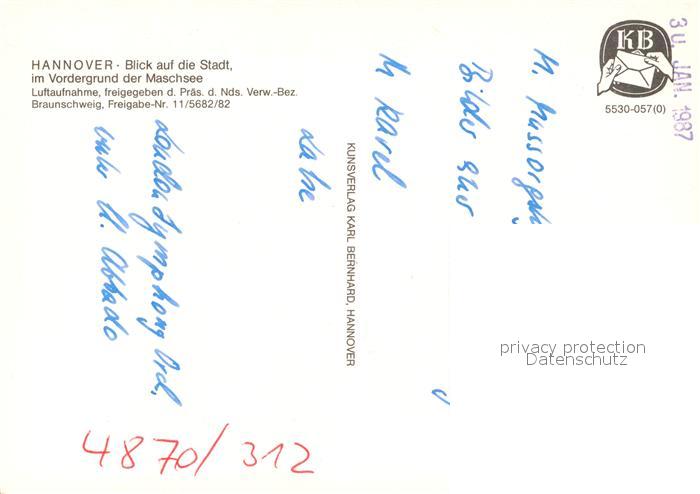 HANNOVER · Blick auf die Stadt,
im Vordergrund der Maschsee
Luftaufnahme, freigegeben d. Präs. d. Nds. Verw.-Bez.
Braunschweig, Freigabe-Nr. 11/5682/82
KB
5530-057(0)
30. JAN. 1987
KUNSVERLAG KARL BERNHARD, HANNOVER
M. Mussorgski
Bilder aus
M Ravel
London Symphony Orch.
unter C. Abbado
privacy protection
Datenschutz
4870/312